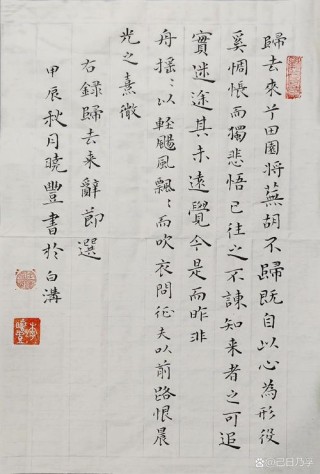 歸去來兮田園將蕪胡不歸既自以心為形役
奚惆悵而獨悲悟已往之不諫知来者之可追
實迷途其未遠覺今是而昨非
舟摇〻以輕颺風飄〻而吹衣問征夫以前路恨晨
光之熹微
右録歸去来辭節選
甲辰秋月曉豐書於白溝
@己日乃孚